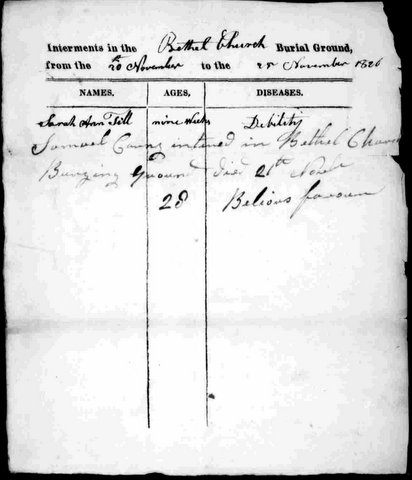 Interments in the Bethel Church Burial Ground,
from the 20th November to the 25 November 1826
NAMES. AGES, DISEASES.
Sarah Ann Fell nine Weeks Debility
Samuel intered in Bethel Church
Burying Ground died 21th
28 Belious